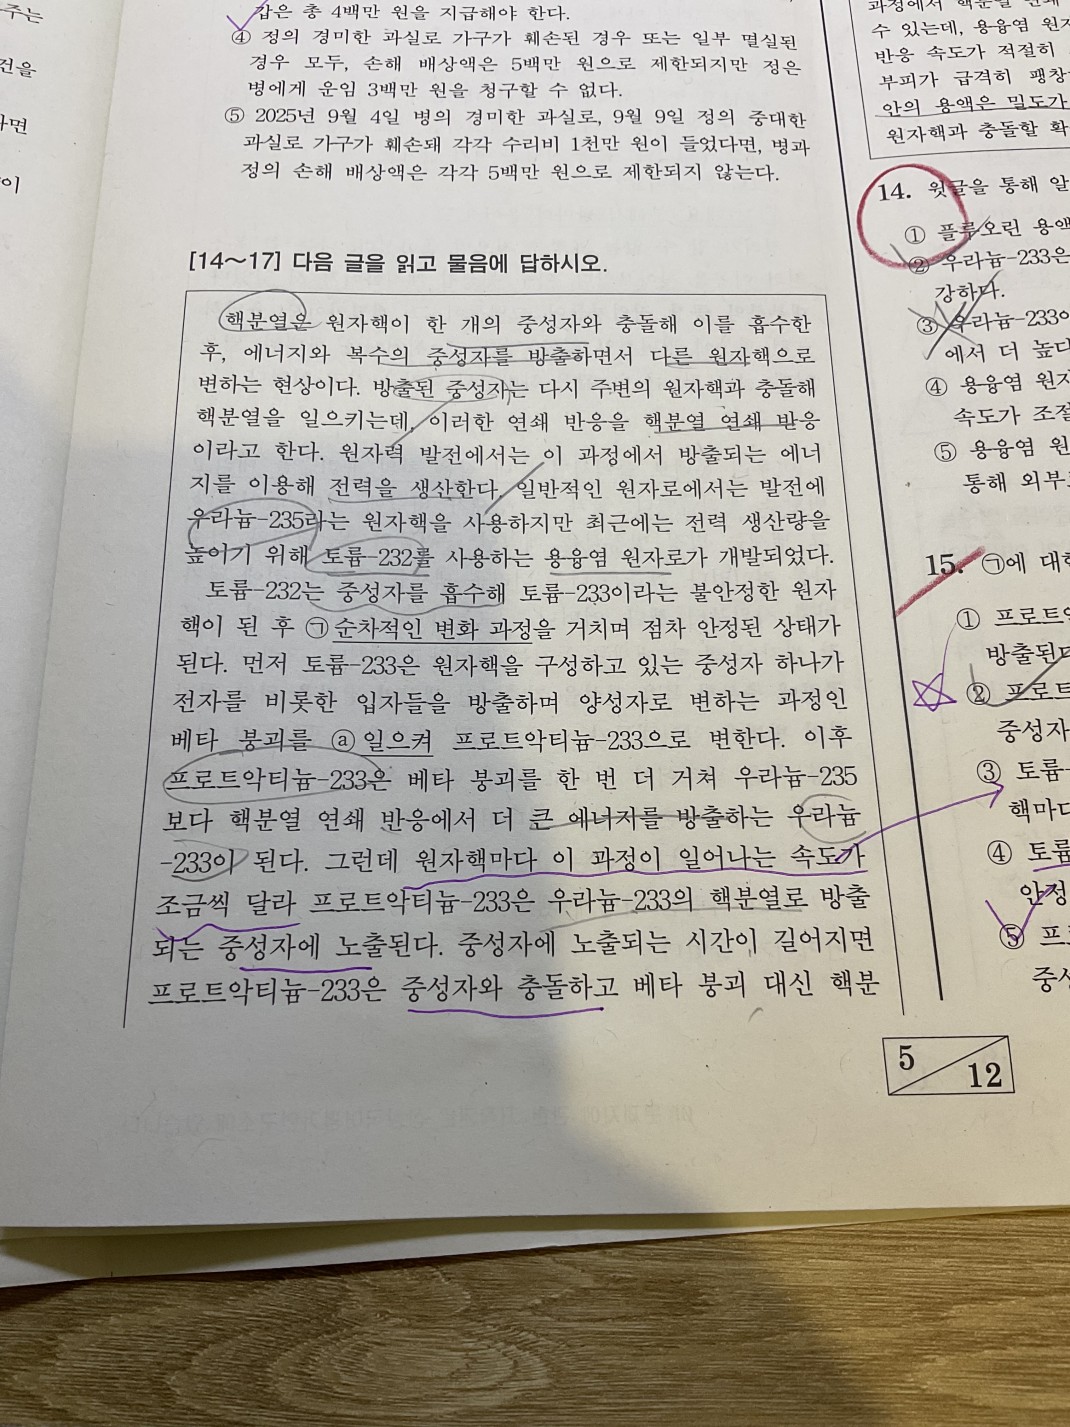 주는
건을
다면
이
갑은 총 4백만 원을 지급해야 한다.
④ 정의 경미한 과실로 가구가 훼손된 경우 또는 일부 멸실된
경우 모두, 손해 배상액은 5백만 원으로 제한되지만 정은
병에게 운임 3백만 원을 청구할 수 없다.
⑤ 2025년 9월 4일 병의 경미한 과실로, 9월 9일 정의 중대한
과실로 가구가 훼손돼 각각 수리비 1천만 원이 들었다면, 병과
정의 손해 배상액은 각각 5백만 원으로 제한되지 않는다.
[14～17] 다음 글을 읽고 물음에 답하시오.
핵분열은 원자핵이 한 개의 중성자와 충돌해 이를 흡수한
후, 에너지와 복수의 중성자를 방출하면서 다른 원자핵으로
변하는 현상이다. 방출된 중성자는 다시 주변의 원자핵과 충돌해
핵분열을 일으키는데, 이러한 연쇄 반응을 핵분열 연쇄 반응
이라고 한다. 원자력 발전에서는 이 과정에서 방출되는 에너
지를 이용해 전력을 생산한다. 일반적인 원자로에서는 발전에
우라늄-235라는 원자핵을 사용하지만 최근에는 전력 생산량을
높이기 위해 토륨-232를 사용하는 용융염 원자로가 개발되었다.
토륨-232는 중성자를 흡수해 토륨-233이라는 불안정한 원자
핵이 된 후 ㉠순차적인 변화 과정을 거치며 점차 안정된 상태가
된다. 먼저 토륨-233은 원자핵을 구성하고 있는 중성자 하나가
전자를 비롯한 입자들을 방출하며 양성자로 변하는 과정인
베타 붕괴를 ⓐ일으켜 프로트악티늄-233으로 변한다. 이후
프로트악티늄-233은 베타 붕괴를 한 번 더 거쳐 우라늄-235
보다 핵분열 연쇄 반응에서 더 큰 에너지를 방출하는 우라늄
-233이 된다. 그런데 원자핵마다 이 과정이 일어나는 속도가
조금씩 달라 프로트악티늄-233은 우라늄-233의 핵분열로 방출
되는 중성자에 노출된다. 중성자에 노출되는 시간이 길어지면
프로트악티늄-233은 중성자와 충돌하고 베타 붕괴 대신 핵분
5
12
수 있는데, 용융염 원자
반응 속도가 적절히
부피가 급격히 팽창
안의 용액은 밀도가
원자핵과 충돌할 확
14. 윗글을 통해 알
① 플루오린 용액
② 우라늄-233은
강하다.
③ 우라늄-233이
에서 더 높다
④ 용융염 원자
속도가 조절
⑤ 용융염 원
통해 외부
15. ㉠에 대한
① 프로트악
방출된다
② 프로트
중성자
③ 토륨-
핵마다
④ 토륨
안정
⑤ 프로
중성